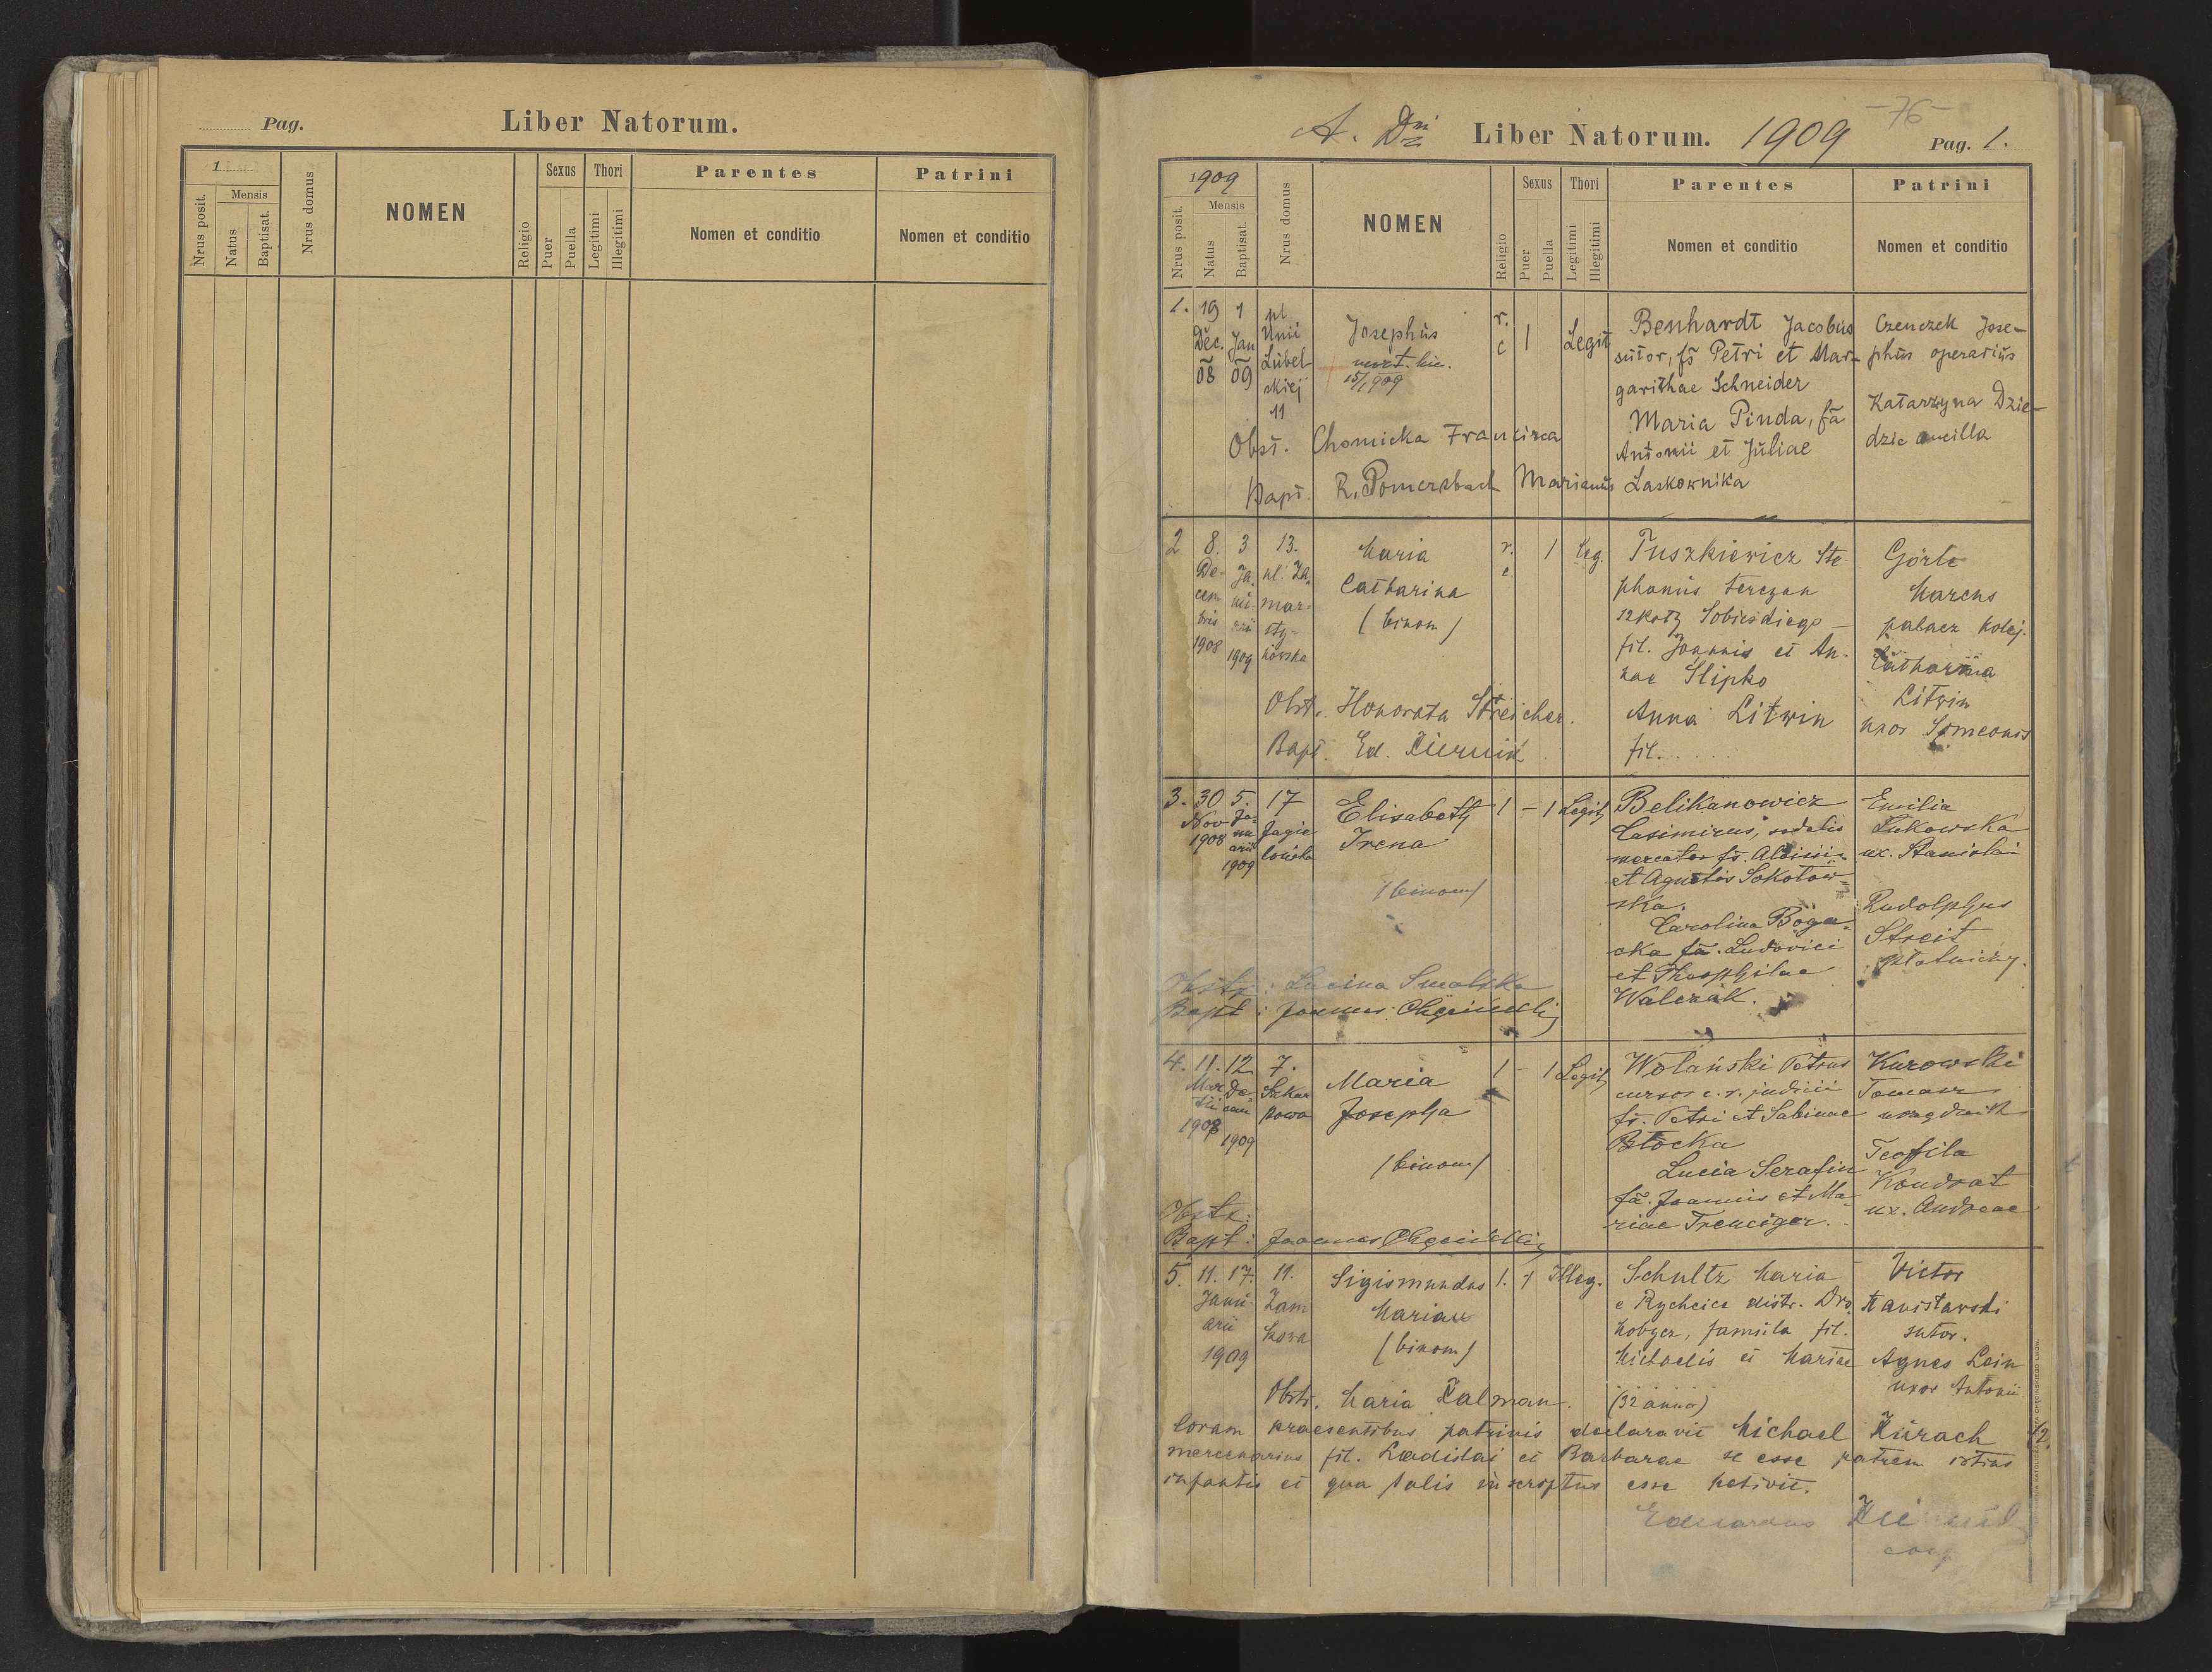 Pag.
Liber Natorum.
1
Nrus posit.
Mensis
Natus
Baptisat.
Nrus domus
NOMEN
Religio
Sexus
Puer
Puella
Thori
Legitimi
Illegitimi
Parentes
Nomen et conditio
Patrini
Nomen et conditio
-76-
A. Dni Liber Natorum. 1909
Pag. 1.
1909
Nrus posit.
Mensis
Natus
Baptisat.
Nrus domus
NOMEN
Religio
Sexus
Puer
Puella
Thori
Legitimi
Illegitimi
Parentes
Nomen et conditio
Patrini
Nomen et conditio
1.
19
Dec.
08
1
Jan
09
pl.
Unii
Lubel-
skiej
11
Josephus
mort. hic.
15/1 909
r.
c
1
Legit
Benhardt Jacobus
sutor, fs Petri et Mar-
garithae Schneider
Maria Pinda, fa
Antonii et Juliae
Czenczek Jose-
phus operarius
Katarzyna Dzie-
dzic ancilla
Obst. Chomicka Francisca
Bapt. R. Pomersbach Marianus Laskownika
2
8.
De-
cem
bris
1908
3
Ja.
nu-
arii
1909
13.
ul. Za
mar-
sty-
nowska
Maria
Catharina
(binom)
r.
c.
1
Leg.
Tuszkiewicz Ste-
phanus tercyan
szkoły Sobieskiego
fil. Joannis et An-
nae Slipko
Anna Litwin
fil. . . . .
Görtz
Marcus
palacz kolej.
Catharina
Litwin
uxor Simeonis
Obst. Honorata Streicher.
Bapt. Ed.
3.
30
Nov
1908
5.
Ja-
nu
arii
1909
17
Jagie
lońska
Elisabeth
Irena
(binom)
1
-
1
Legit
Belikanowicz
Casimirus, sodalis
mercator fs. Aloisii
et Agnetis Sokołow-
ska.
Carolina Boga-
cka fa. Ludovici
et Theophilae
Walczak.
Emilia
Łukowska
ux. Stanislai
Rudolphus
Streit
płatniczy.
Obstz: Lucina Smolska
Bapt: Joannes
4.
11.
Mar
tii
1908
12.
De-
cem
1909
7.
Szkar
powa
Maria
Josepha
(binom)
1
-
1
Legit
Wolański Petrus
cursor c. r. judicii
fs. Petri et Sabinae
Błocka
Lucia Serafin
fa. Joannis et Ma-
riae Trenciger.
Kurowski
Tomasz
urzędnik
Teofila
Kondrat
ux. Andreae
Obstz:
Bapt: Joannes
5.
11.
17.
Janu-
arii
1909
11.
Zam
kowa
Sigismundus
Marian
(binom)
1.
1
Illeg.
Schultz Maria
e Rychcice distr. Dro-
hobycz, famula fil.
Michaelis et Mariae
(32 anno)
Victor
Stanisławski
sutor.
Agnes Lein
uxor Antonii
Obstr. Maria Kalman.
Coram praesentibus patrinis declaravit Michael Kurach
mercenarius fil. Ladislai et Barbarae se esse patrem istius
infantis et qua talis inscriptus esse petivit.
Eduardus
coop